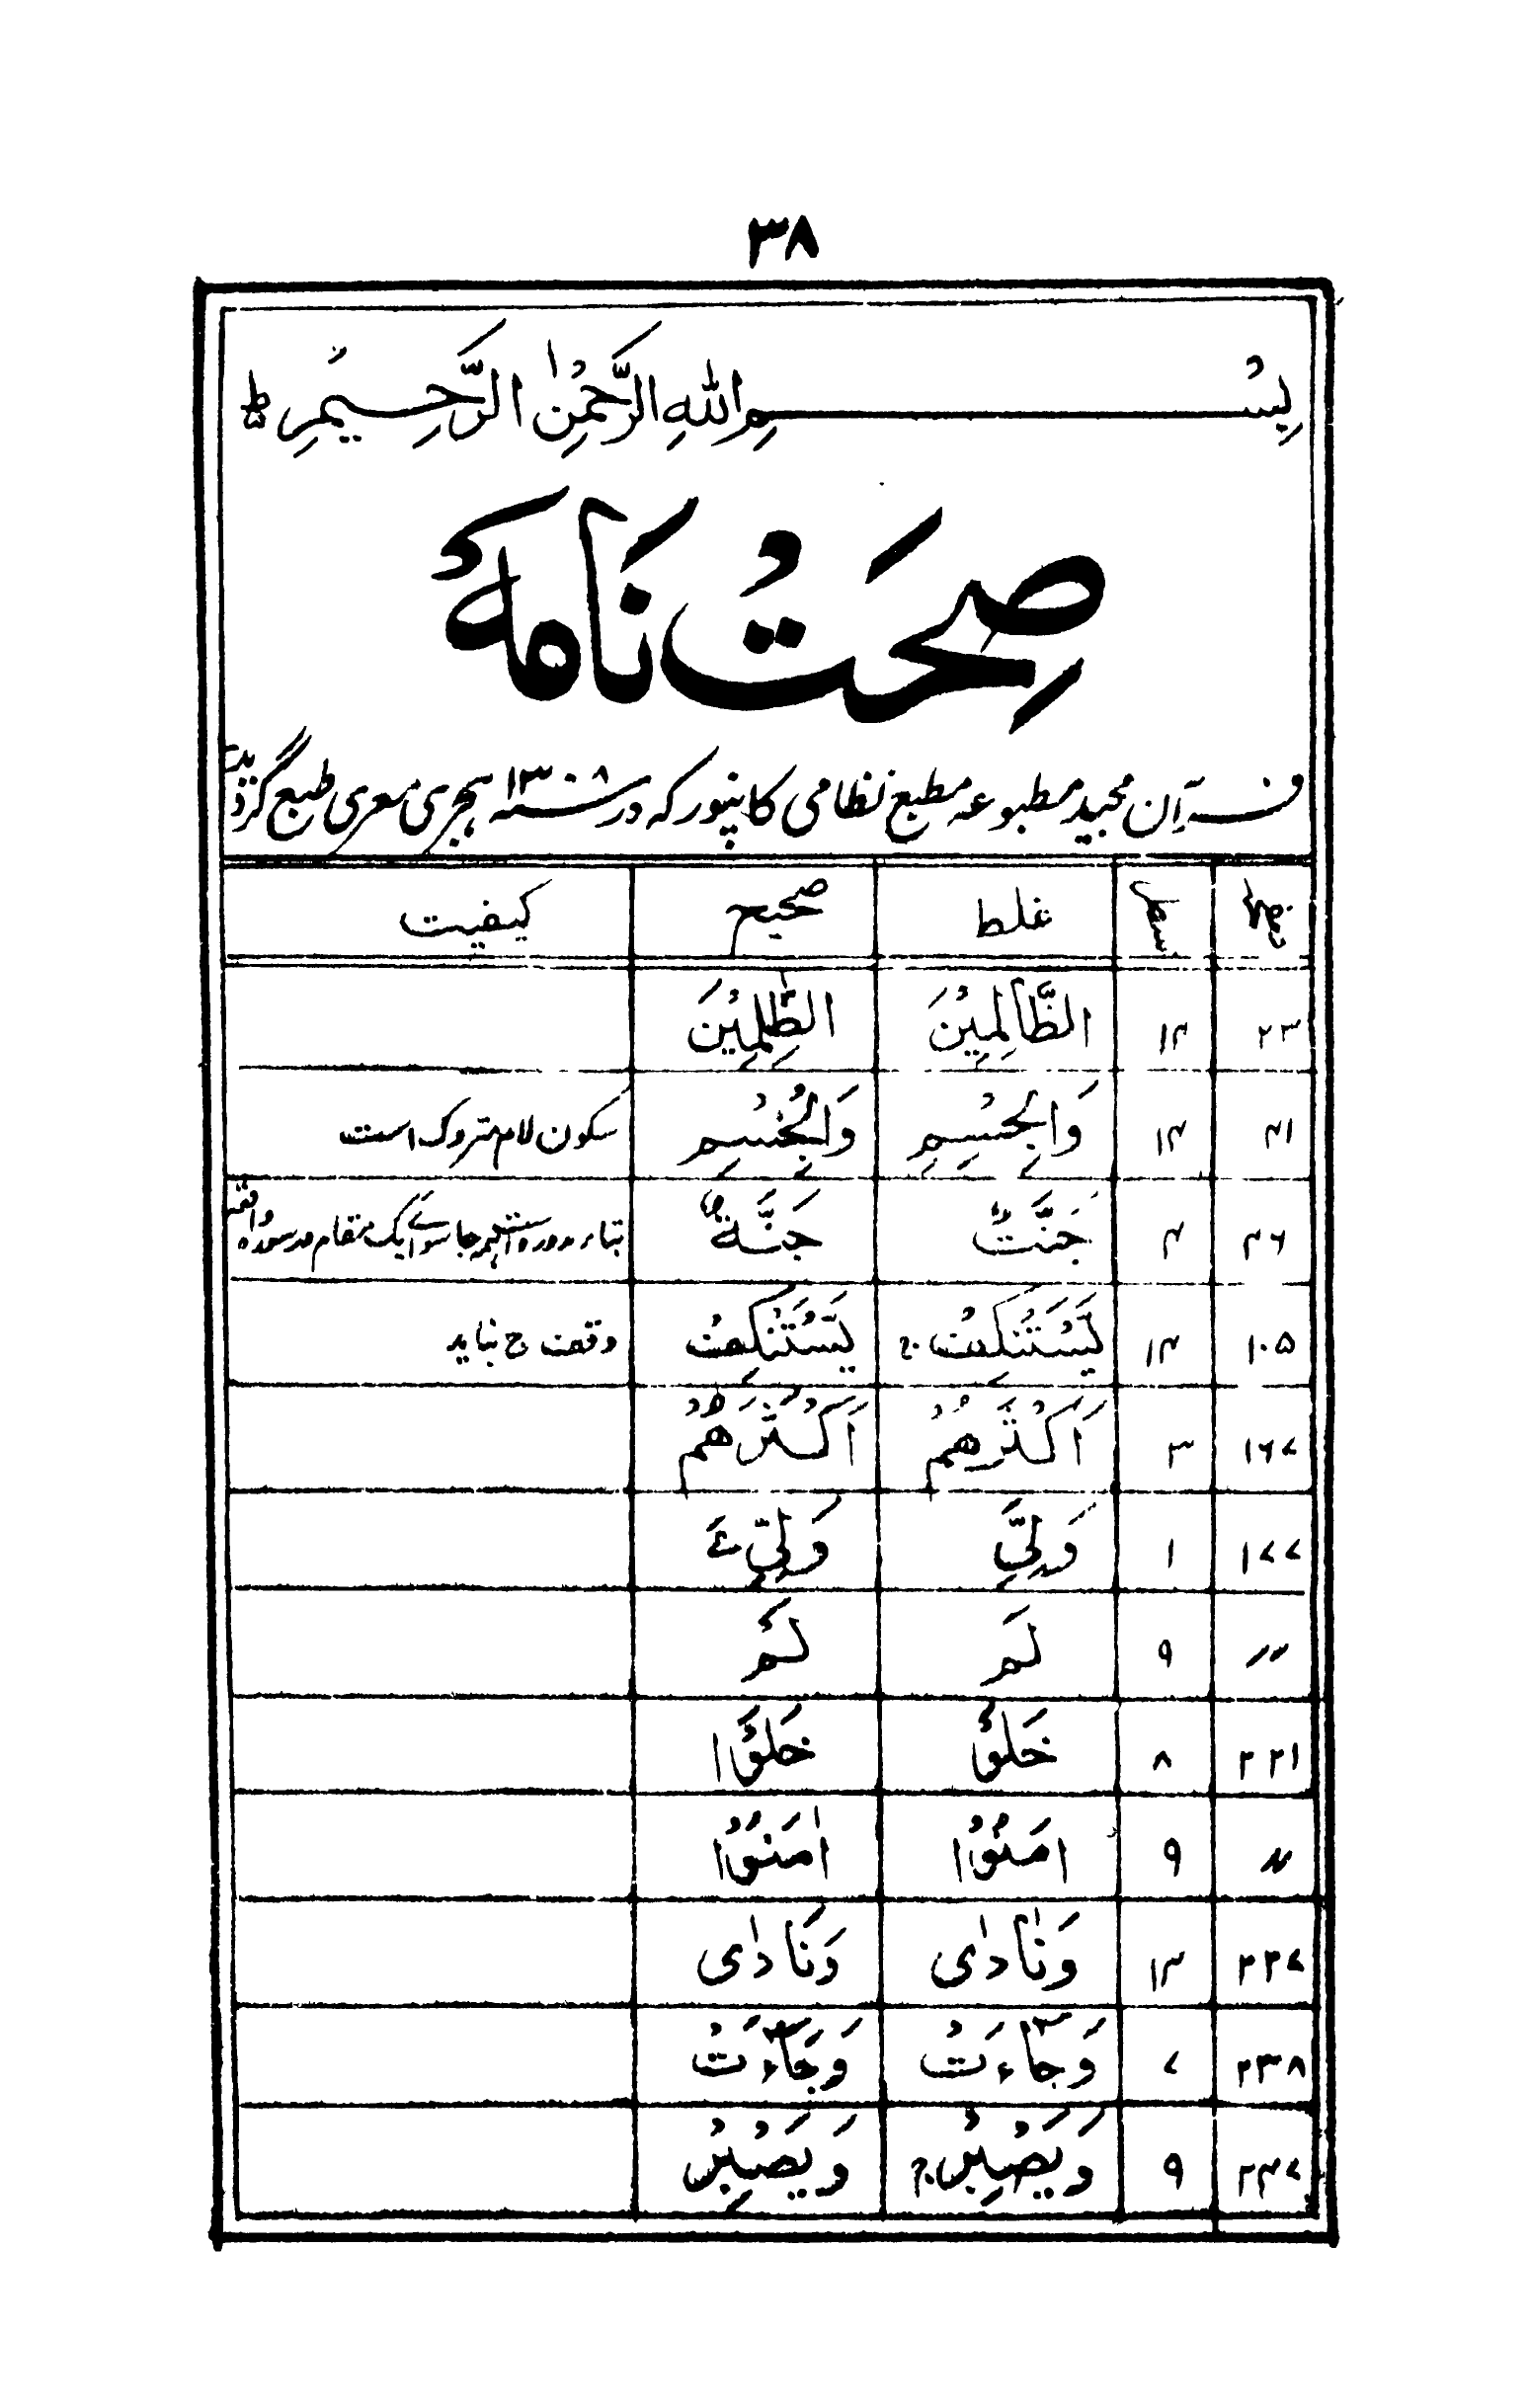 ۳۸
بِسْمِ اللهِ الرَّحْمٰنِ الرَّحِيْمِ ط
صِحَتْ نَامَهٔ
قرآن مجید مطبوعہ مطبع نظامی کانپور کہ در ۱۳۰۸ ہجری معری طبع گردید
صفحہ سطر غلط صحیح کیفیت
۲۳ ۱۴ الظَّالِمِيْنَ الظّٰلِمِيْنَ
۴۱ ۱۴ وَالْجِسْمِ وَالْجِسْمِ سکون لام متروک است
۴۶ ۴ جَنَّتٌ جَنَّةٌ
۱۰۵ ۱۴ يَّسْتَنْكِفْ ج يَّسْتَنْكِفْ وقف ج نباید
۱۶۷ ۳ اَكْثَرَهُمْ اَكْثَرَهُمْ
۱۷۷ ۱ وَلِيَّ وَلِيِّۦَ
〃 ۹ لَم لَمْ
۲۲۱ ۸ خَلَوْ خَلَوْا
〃 ۹ امَنُوْا اٰمَنُوْا
۲۲۷ ۱۳ وَنَادٰى وَنَادٰى
۲۳۸ ۷ وَجَآءَتْ وَجَآءَتْ
۲۴۷ ۹ وَيَصْبِرْ ج وَيَصْبِرْ